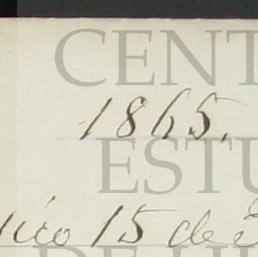 CENT
1865.
ESTU
ico 15 de E
DE H